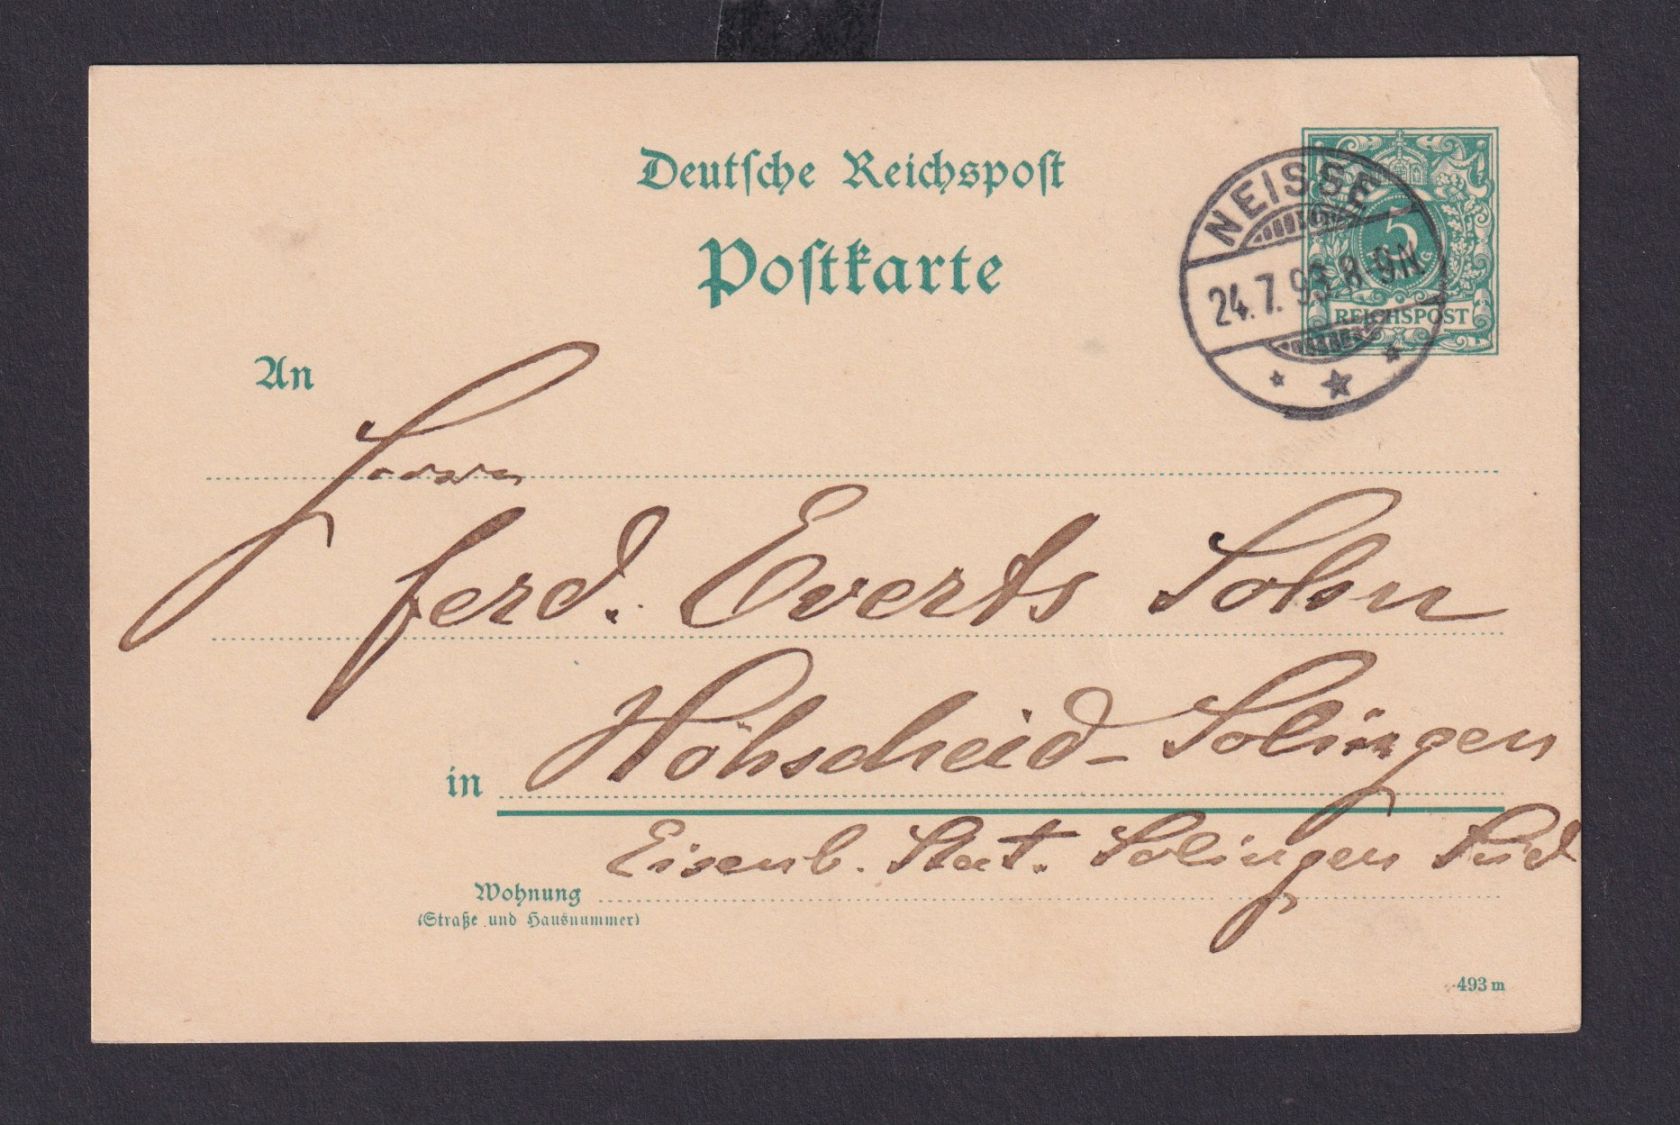 Deutsche Reichspost
Postkarte
NEISSE
24.7.93 8-9N
5
REICHSPOST
An
Herrn
Ferd. Everts Sohn
in Höhscheid-Solingen
Eisenb. Stat. Solingen Süd
Wohnung
(Straße und Hausnummer)
493 m